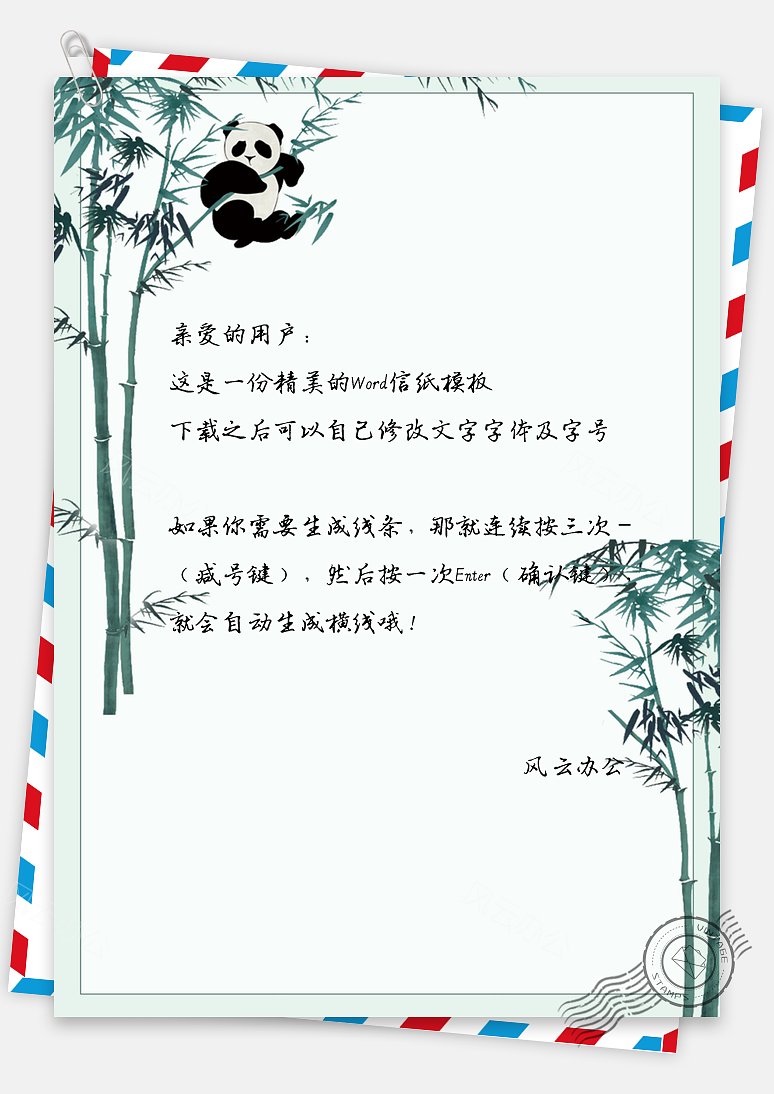 亲爱的用户：
这是一份精美的Word信纸模板
下载之后可以自己修改文字字体及字号
如果你需要生成线条，那就连续按三次－
（减号键），然后按一次Enter（确认键），
就会自动生成横线哦！
风云办公
风云办公
风云办公
风云办公
风云办公
STAMPS